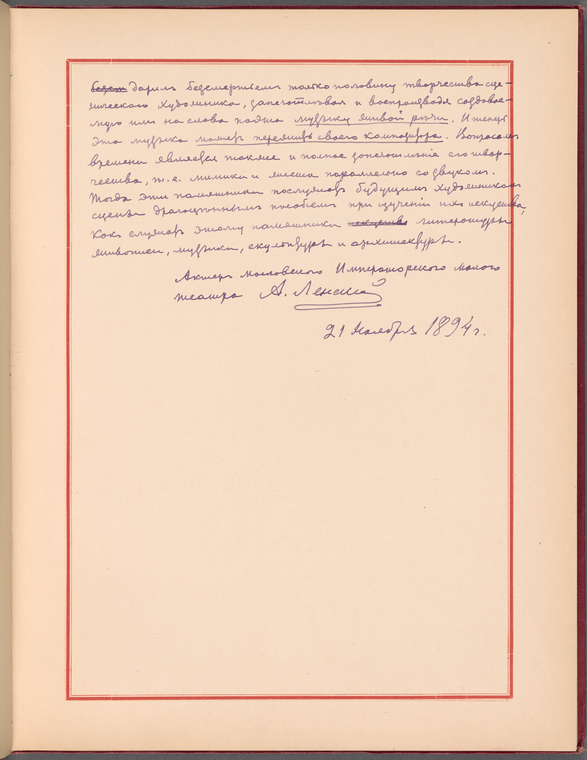 даритъ безсмертіемъ только половину творчества сце-
ническаго художника, запечатлѣвая и воспроизводя создавае-
мую имъ на слова поэта музыку живой рѣчи. И теперь
эта музыка можетъ пережить своего композитора. Вопросомъ
времени является также и полное запечатлѣніе его твор-
чества, т. е. мимики и жеста параллельно со звукомъ.
Тогда эти памятники послужатъ будущимъ художникамъ
сцены драгоцѣннымъ пособіемъ при изученіи ихъ искусства,
какъ служатъ этому памятники искусства литературы
живописи, музыки, скульптуры и архитектуры.
Актеръ Московскаго Императорскаго Малаго
театра А. Ленскій
21 Ноября 1894 г.